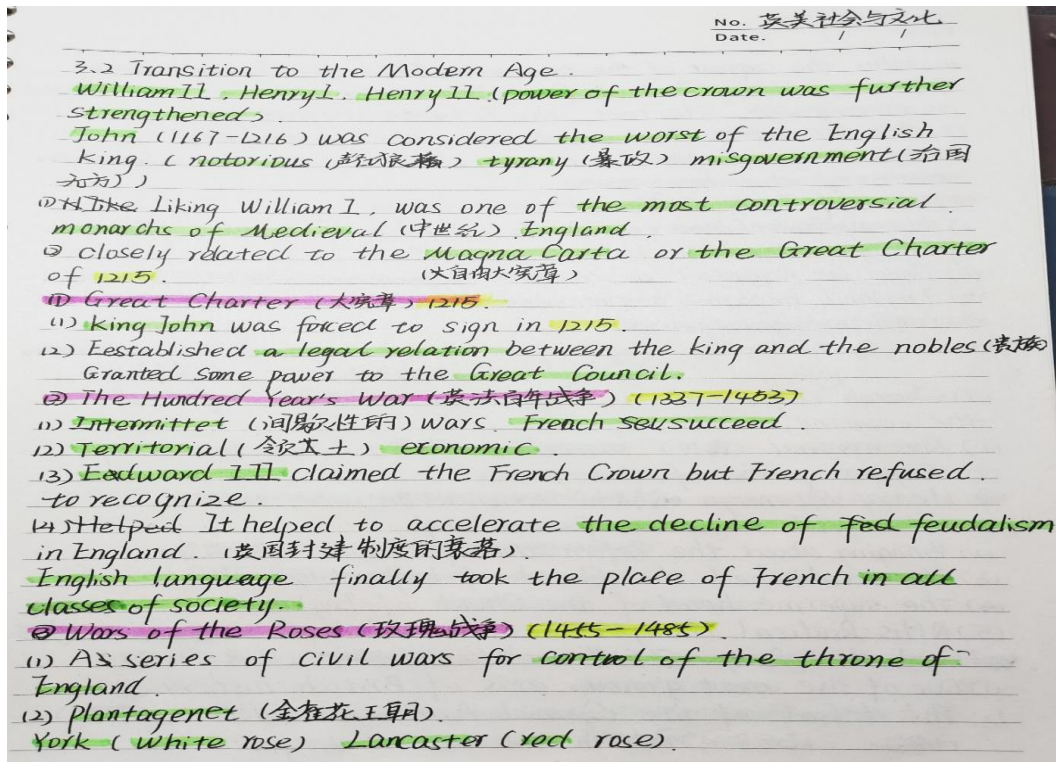 No. 英美社会与文化
Date. / /
3.2 Transition to the Modern Age.
William II. Henry I. Henry II (power of the crown was further
strengthened)
John (1167-1216) was considered the worst of the English
king. (notorious (声名狼藉) tyrany (暴政) misgovernment (治国
无方))
① Liking William I, was one of the most controversial
monarchs of Medieval (中世纪) England.
② closely related to the Magna Carta or the Great Charter
of 1215. (大自由大宪章)
① Great Charter (大宪章) 1215.
(1) King John was forced to sign in 1215.
(2) Eestablished a legal relation between the king and the nobles (贵族)
Granted some power to the Great Council.
② The Hundred Year's War (英法百年战争) (1337-1453)
(1) Intermittet (间歇性的) wars. French succeed.
(2) Territorial (领土) economic.
(3) Edward III claimed the French Crown but French refused.
to recognize.
(4) It helped to accelerate the decline of feudalism
in England. (英国封建制度的衰落).
English language finally took the place of French in all
classes of society.
Wars of the Roses (玫瑰战争) (1455-1485).
(1) A series of civil wars for control of the throne of
England.
(2) Plantagenet (金雀花王朝).
York (White rose) Lancaster (red rose).